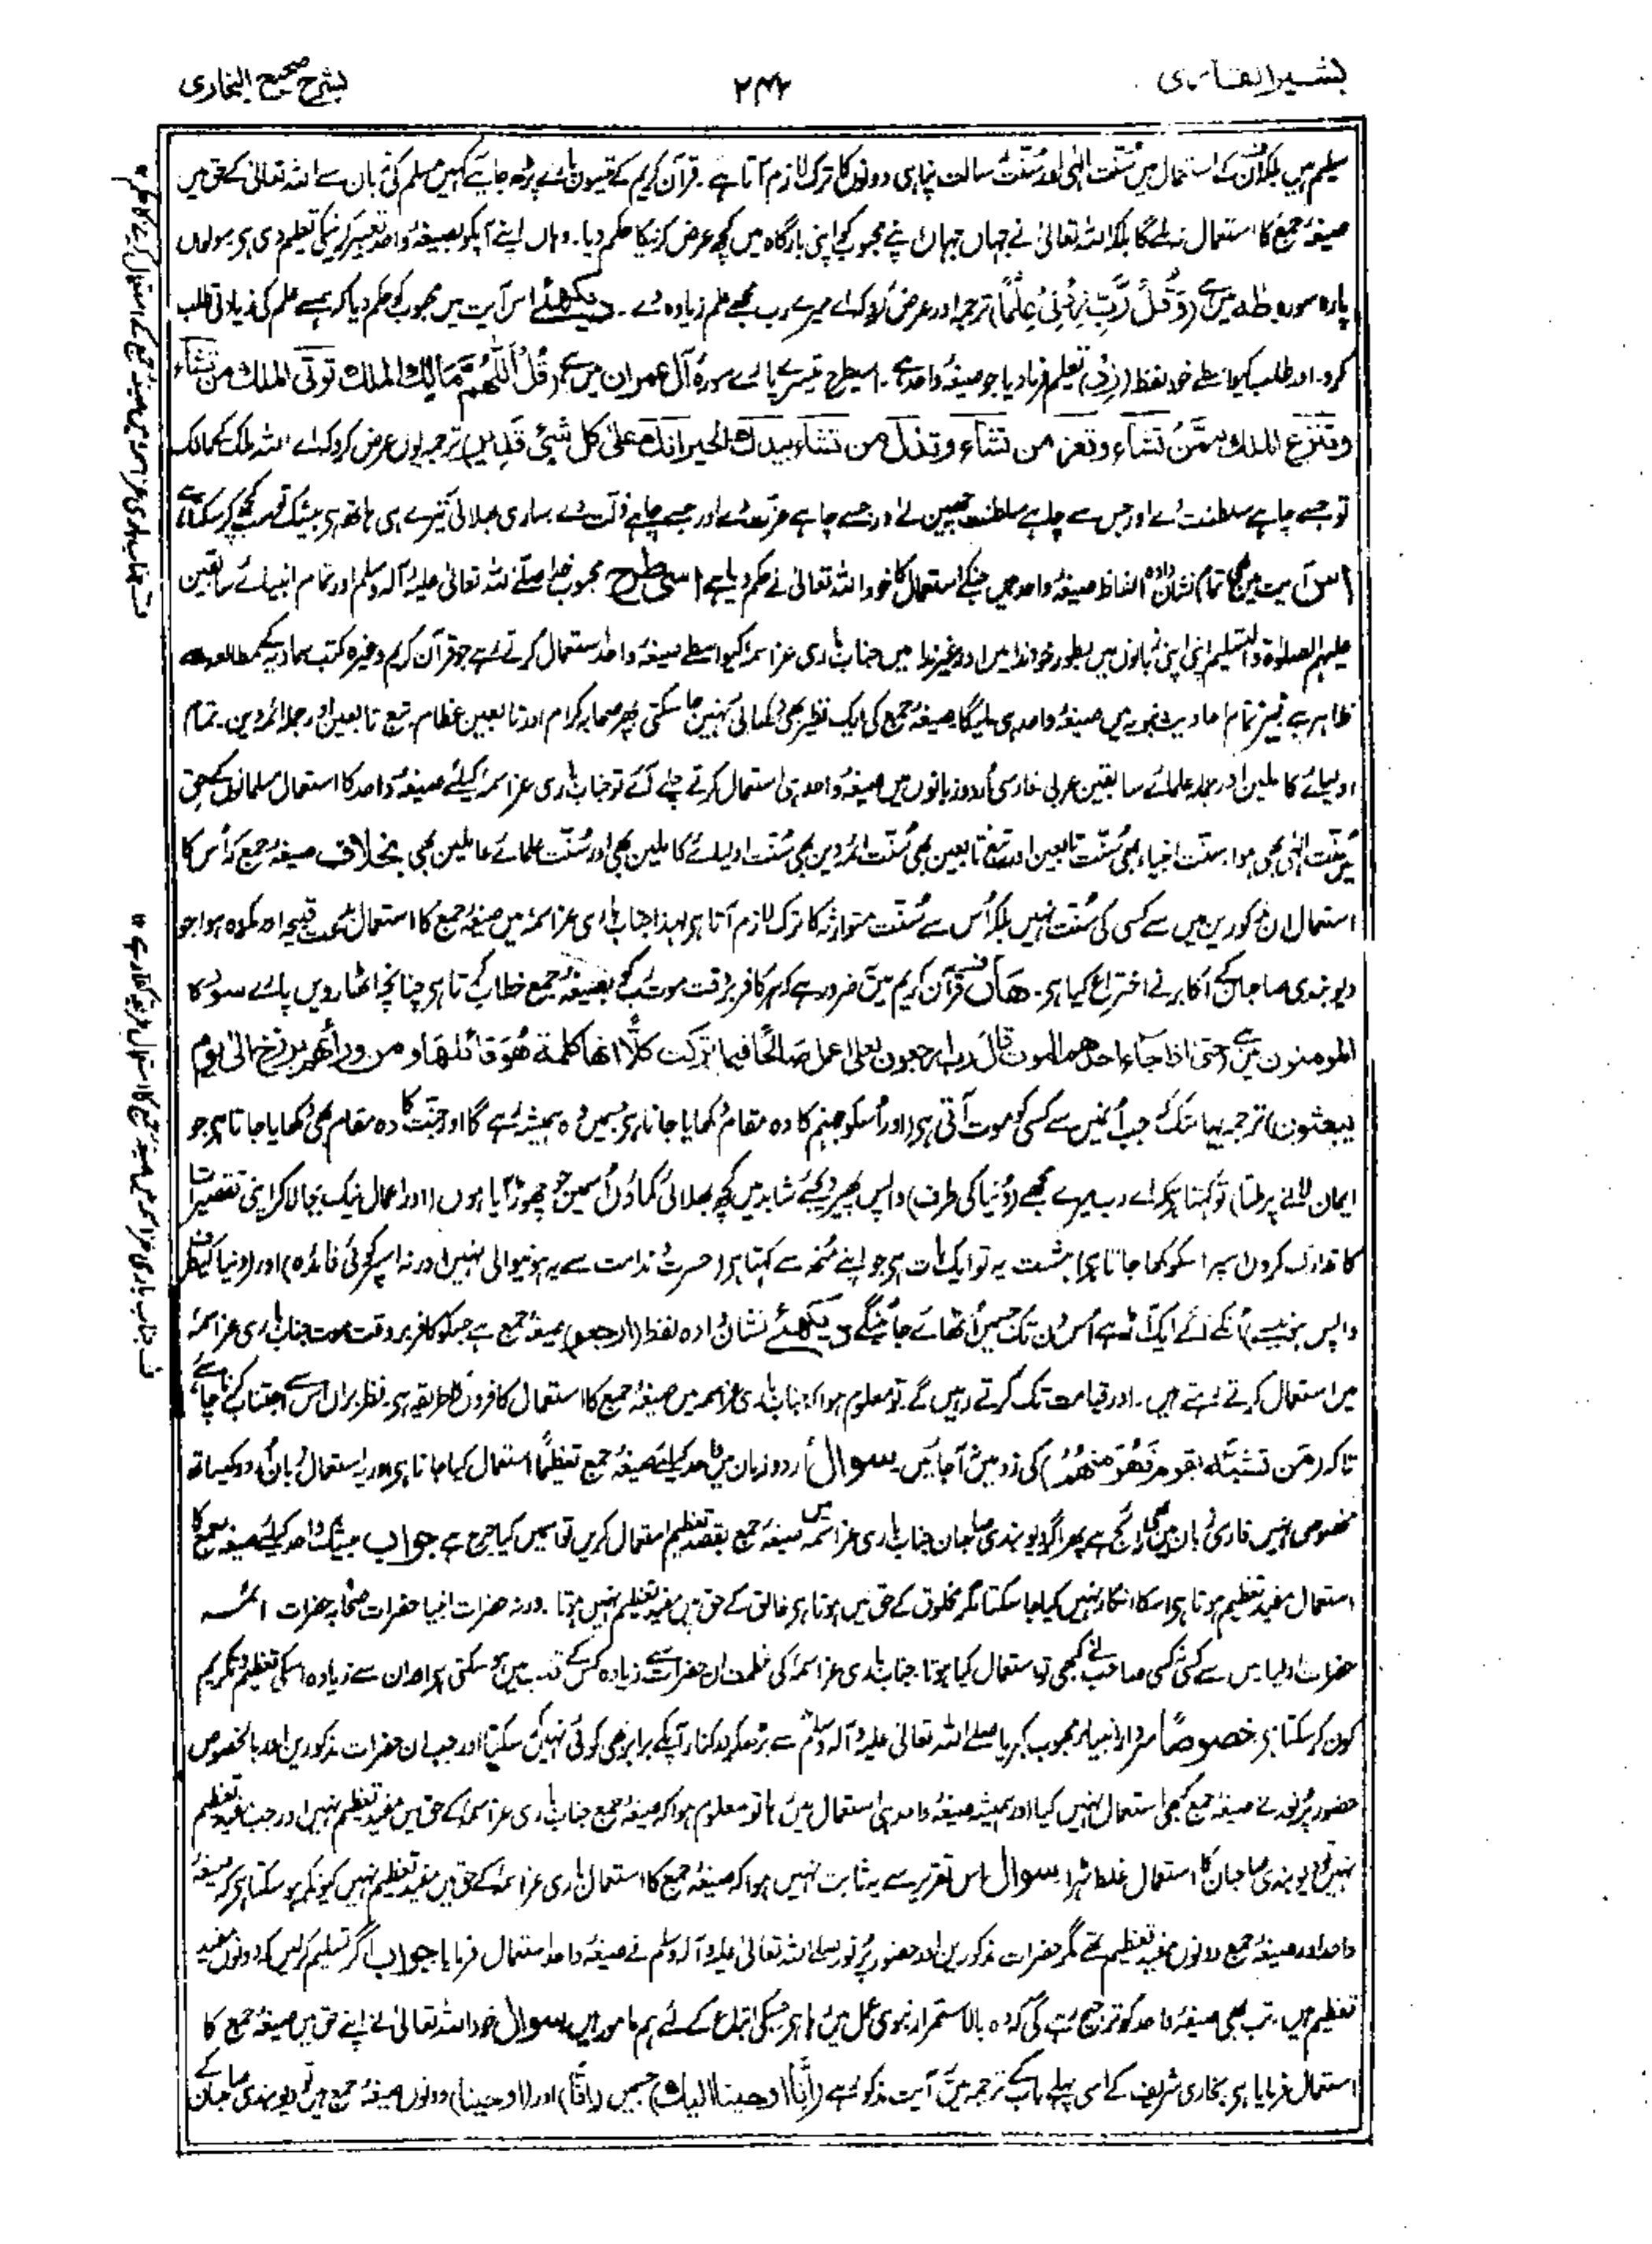 بشیر القاری
۲۴۶
بشرح صحیح البخاری
سلیم ہیں بلکہ اُن کے استعمال میں سُنّت الٰہی اور سُنّت رسالت پناہی دونوں کا ترک لازم آتا ہے۔ قرآن کریم کے تیسوں پارے پڑھ جائیے کہیں مسلم کی زبان سے اللہ تعالیٰ کے حق میں
صیغۂ جمع کا استعمال نہ ملے گا بلکہ اللہ تعالیٰ نے جہاں جہاں اپنے محبوب کو اپنی بارگاہ میں کچھ عرض کرنیکا حکم دیا۔ وہاں اپنے آپکو بصیغۂ واحد تعبیر کرنیکی تعلیم دی ہی سولہوں
پارہ سورہ طٰہٰ میں ہے (وَقُلْ رَّبِّ زِدْنِیْ عِلْمًا) ترجمہ اور عرض کرو کہ اے میرے رب مجھے علم زیادہ دے۔ دیکھئے اس آیت میں محبوب کو حکم دیا کہ ہمسے علم کی زیادتی طلب
کرو۔ اور طلب کیواسطے خود لفظ (زِدْ) تعلیم فرما دیا جو صیغۂ واحد ہے۔ اسیطرح تیسرے پارے سورۂ آل عمران میں ہے (قُلِ اللّٰهُمَّ مَالِكَ الملك توتی الملك من تشاء
وتنزع الملك ممّن تشاء وتعز من تشاء وتذل من تشاء بیدك الخیر انك علی كل شیئ قدیر) ترجمہ یوں عرض کرو کہ اے اللہ ملک کے مالک
تو جسے چاہے سلطنت دے اور جس سے چاہے سلطنت چھین لے اور جسے چاہے عزت دے اور جسے چاہے ذلت دے۔ ساری بھلائی تیرے ہی ہاتھ ہی بیشک تو سب کچھ کر سکتا ہے
اس آیت میں بھی تمام نشان دادہ الفاظ صیغۂ واحد ہیں جنکے استعمال کا خود اللہ تعالیٰ نے حکم دیا ہے اسی طرح محبوب خدا صلے اللہ تعالیٰ علیہ وآلہ وسلم اور تمام انبیائے سابقین
علیہم الصلوٰۃ والتسلیم اپنی اپنی زبانوں میں بطور خود ندا میں اور غیر ندا میں جناب باری عز اسمہٗ کیواسطے صیغۂ واحد استعمال کرتے رہے جو قرآن کریم وغیرہ کتب سماویہ کے مطالعہ سے
ظاہر ہے نیز تمام احادیث نبویہ میں صیغۂ واحد ہی ملیگا صیغۂ جمع کی ایک نظیر بھی دکھائی نہیں جا سکتی پھر صحابہ کرام اور تابعین عظام تبع تابعین اور جملہ ائمہ دین۔ تمام
اولیائے کاملین اور جملہ علمائے سابقین عربی فارسی اُردو زبانوں میں صیغۂ واحد ہی استعمال کرتے چلے آئے تو جناب باری عز اسمہٗ کیلئے صیغۂ واحد کا استعمال مسلمانوں کے حق
میں سنت الٰہی بھی ہوا۔ سنت انبیاء بھی سُنّت تابعین اور تبع تابعین بھی سُنّت ائمہ دین بھی سُنّت اولیائے کاملین بھی اور سُنّت علمائے عاملین بھی بخلاف صیغۂ جمع کہ اُس کا
استعمال ان مذکورین میں سے کسی کی سُنّت نہیں بلکہ اُس سے سُنّت متوارثہ کا ترک لازم آتا ہی لہذا جناب باری عز اسمہٗ میں صیغۂ جمع کا استعمال بدعت قبیحہ اور مکروہ ہوا جو
دیوبندی صاحبان کے اکابر نے اختراع کیا ہی۔ ھاں قرآن کریم میں ضرور ہے کہ ہر کافر بوقت موت رب کو بصیغۂ جمع خطاب کرتا ہی چنانچہ اٹھارویں پارے سورۂ
المومنون میں ہے (حتی اذا جاء احدھم الموت قال رب ارجعون لعلی اعمل صالحًا فیما ترکت کلّا انھا کلمة ھُوَ قائلھا ومن ورآئھم برزخ الی یوم
یبعثون) ترجمہ یہاں تک کہ جب اُنمیں سے کسی کو موت آتی ہی (اور اُسکو جہنم کا وہ مقام دکھایا جاتا ہی جسمیں وہ ہمیشہ رہے گا اور جنّت کا وہ مقام بھی دکھایا جاتا ہی جو
ایمان لانے پر ملتا) تو کہتا ہی کہ اے رب میرے مجھے (دُنیا کی طرف) واپس پھیر دیجئے شاید میں کچھ بھلائی کماؤں اُسمیں جو چھوڑ آیا ہوں (اور اعمال نیک بجا لا کر اپنی تقصیرات
کا تدارک کروں اسپر اسکو کہا جاتا ہی) ہشت یہ تو ایک بات ہی جو اپنے مُنھ سے کہتا ہی (حسرت ندامت سے یہ ہونیوالی نہیں اور نہ اسپر کوئی فائدہ) اور (دنیا کیطرف
واپس ... ) اُنکے آگے ایک آڑ ہے اُس دن تک جسمیں اُٹھائے جائینگے دیکھئے نشان دادہ لفظ (ارجعون) صیغۂ جمع ہے جسکو کافر بروقت موت جناب باری عز اسمہٗ
میں استعمال کرتے رہتے ہیں۔ اور قیامت تک کرتے رہیں گے۔ تو معلوم ہوا کہ جناب باری عز اسمہ میں صیغۂ جمع کا استعمال کافروں کا طریقہ ہی۔ نظر براں اس سے اجتناب کرنا چاہئے
تاکہ (مَن تشبّه بقوم فَھُوَ مِنْھُمْ) کی زد میں نہ آجائیں۔ سوال اُردو زبان میں واحد کیلئے صیغۂ جمع تعظیمًا استعمال کیا جاتا ہی اور یہ استعمال زبان اُردو کیساتھ
مخصوص نہیں فارسی زبان میں بھی رائج ہے پھر اگر دیوبندی صاحبان جناب باری عز اسمہٗ میں صیغۂ جمع بقصد تعظیم استعمال کریں تو اسمیں کیا حرج ہے جواب بیشک واحد کیلئے صیغۂ جمع کا
استعمال مفید تعظیم ہوتا ہی اسکا انکار نہیں کیا جا سکتا مگر مخلوق کے حق میں ہوتا ہی خالق کے حق میں مفید تعظیم نہیں ہوتا۔ ورنہ حضرات انبیا حضرات صحابہ حضرات ائمہ
حضرات اولیا میں سے کسی نہ کسی صاحب نے کبھی تو استعمال کیا ہوتا۔ جناب باری عز اسمہٗ کی عظمت ان حضرات سے زیادہ کس کے قلب میں ہو سکتی ہی اور ان سے زیادہ اسکی تعظیم وتکریم
کون کر سکتا ہی خصوصًا سردار انبیاء محبوب کبریا صلے اللہ تعالیٰ علیہ وآلہ وسلم سے بڑھکر تو درکنار آپکے برابر بھی کوئی نہیں کر سکتا اور جب ان حضرات مذکورین اور بالخصوص
حضور پُر نور نے صیغۂ جمع کبھی استعمال نہیں کیا اور ہمیشہ صیغۂ واحد ہی استعمال میں رہا تو معلوم ہوا کہ صیغۂ جمع جناب باری عز اسمہٗ کے حق میں مفید تعظیم نہیں اور جب مفید تعظیم
نہیں تو دیوبندی صاحبان کا استعمال غلط ٹھہرا سوال اس تقریر سے یہ ثابت نہیں ہوا کہ صیغۂ جمع کا استعمال باری عز اسمہٗ کے حق میں مفید تعظیم نہیں کیونکہ ہو سکتا ہی کہ صیغۂ
واحد اور صیغۂ جمع دونوں مفید تعظیم تھے مگر حضرات مذکورین اور حضور پُر نور صلے اللہ تعالیٰ علیہ وآلہ وسلم نے صیغۂ واحد استعمال فرمایا جواب اگر تسلیم کرلیں کہ دونوں مفید
تعظیم ہیں۔ تب بھی صیغۂ واحد کو ترجیح رہے گی کہ وہ بالاستمرار نبوی عمل میں رہا ہی جسکی اتباع کے لئے ہم مامور ہیں۔ سوال خود اللہ تعالیٰ نے اپنے حق میں صیغۂ جمع کا
استعمال فرمایا ہی بخاری شریف کے اسی پہلے باب کے ترجمہ میں آیت مذکور ہے (اِنَّا اوحینا الیك) جسمیں (اِنَّا) اور (اوحینا) دونوں صیغۂ جمع ہیں تو دیوبندی صاحبان کے
ف جناب باری عز اسمہٗ میں صیغۂ جمع کے استعمال کرنے کا حکم ۱۲
ف جناب باری عز اسمہٗ میں صیغۂ جمع کا استعمال طریقۂ کفار ہے ۱۲